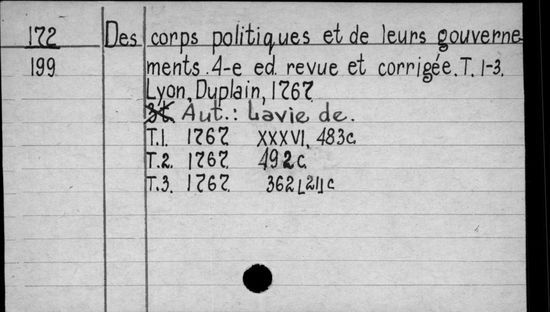 172 Des corps politiques et de leurs gouverne-
199 ments. 4-e ed. revue et corrigée. T. 1-3.
Lyon, Duplain, 1767.
Aut.: Lavie de.
T.1. 1767 XXXVI, 483c.
T.2. 1767. 492c.
T.3. 1767. 362[21]c